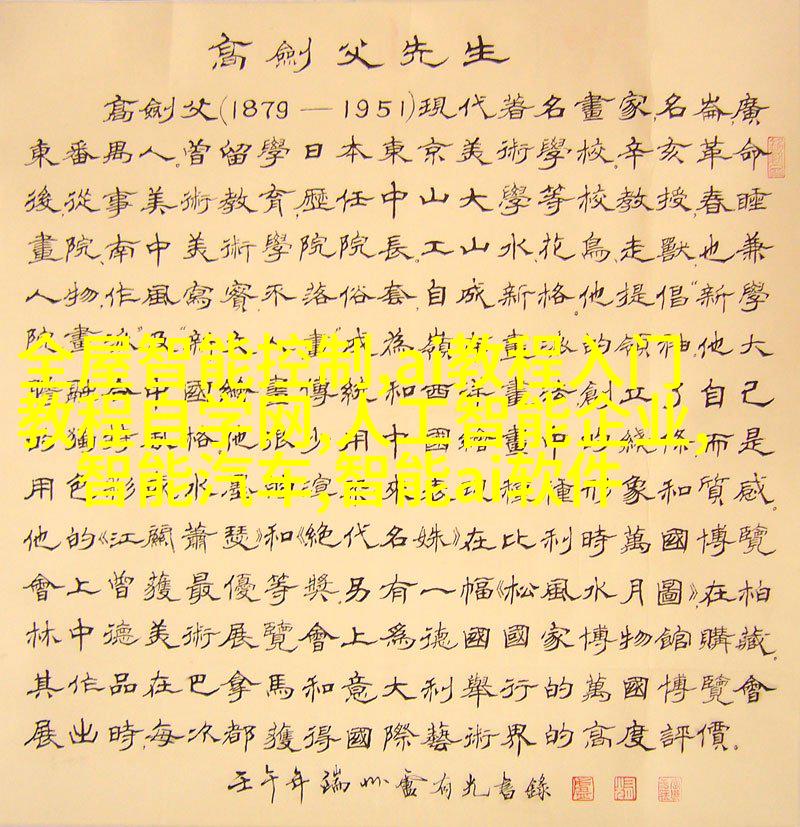 高劍父先生
高劍父(1879—1951)現代著名畫家,名崙,廣
東番禺人.曾留學日本東京美術學校.辛亥革命
後,從事美術教育,歷任中山大學等校教授,春睡
畫院,南中美術學院院長.工山水,花鳥,走獸,也兼
人物,作風寫實,不落俗套,自成新格.他提倡"新學
院畫 及"新 人 畫"成為嶺 畫 的領 他大
融合中國繪畫傳統和西洋畫法創立了自己
的獨 格,他很少用中國繪畫中的綫條,而是
用色彩或水墨 渲 來表現種 形象和質感.
他的《江關蕭瑟》和《絕代名姝》在比利時萬國博覽
會上曾獲最優等獎.另有一幅《松風水月圖》,在柏
林中德美術展覽會上為德國國家博物館購藏.
其作品在巴拿馬和意大利舉行的萬國博覽會
展出時,每次都獲得國際藝術界的高度評價.
壬午年端州盧有光書錄
全屋智能控制,ai教程入门
教程自学网,人工智能企业,
智能汽车,智能ai软件